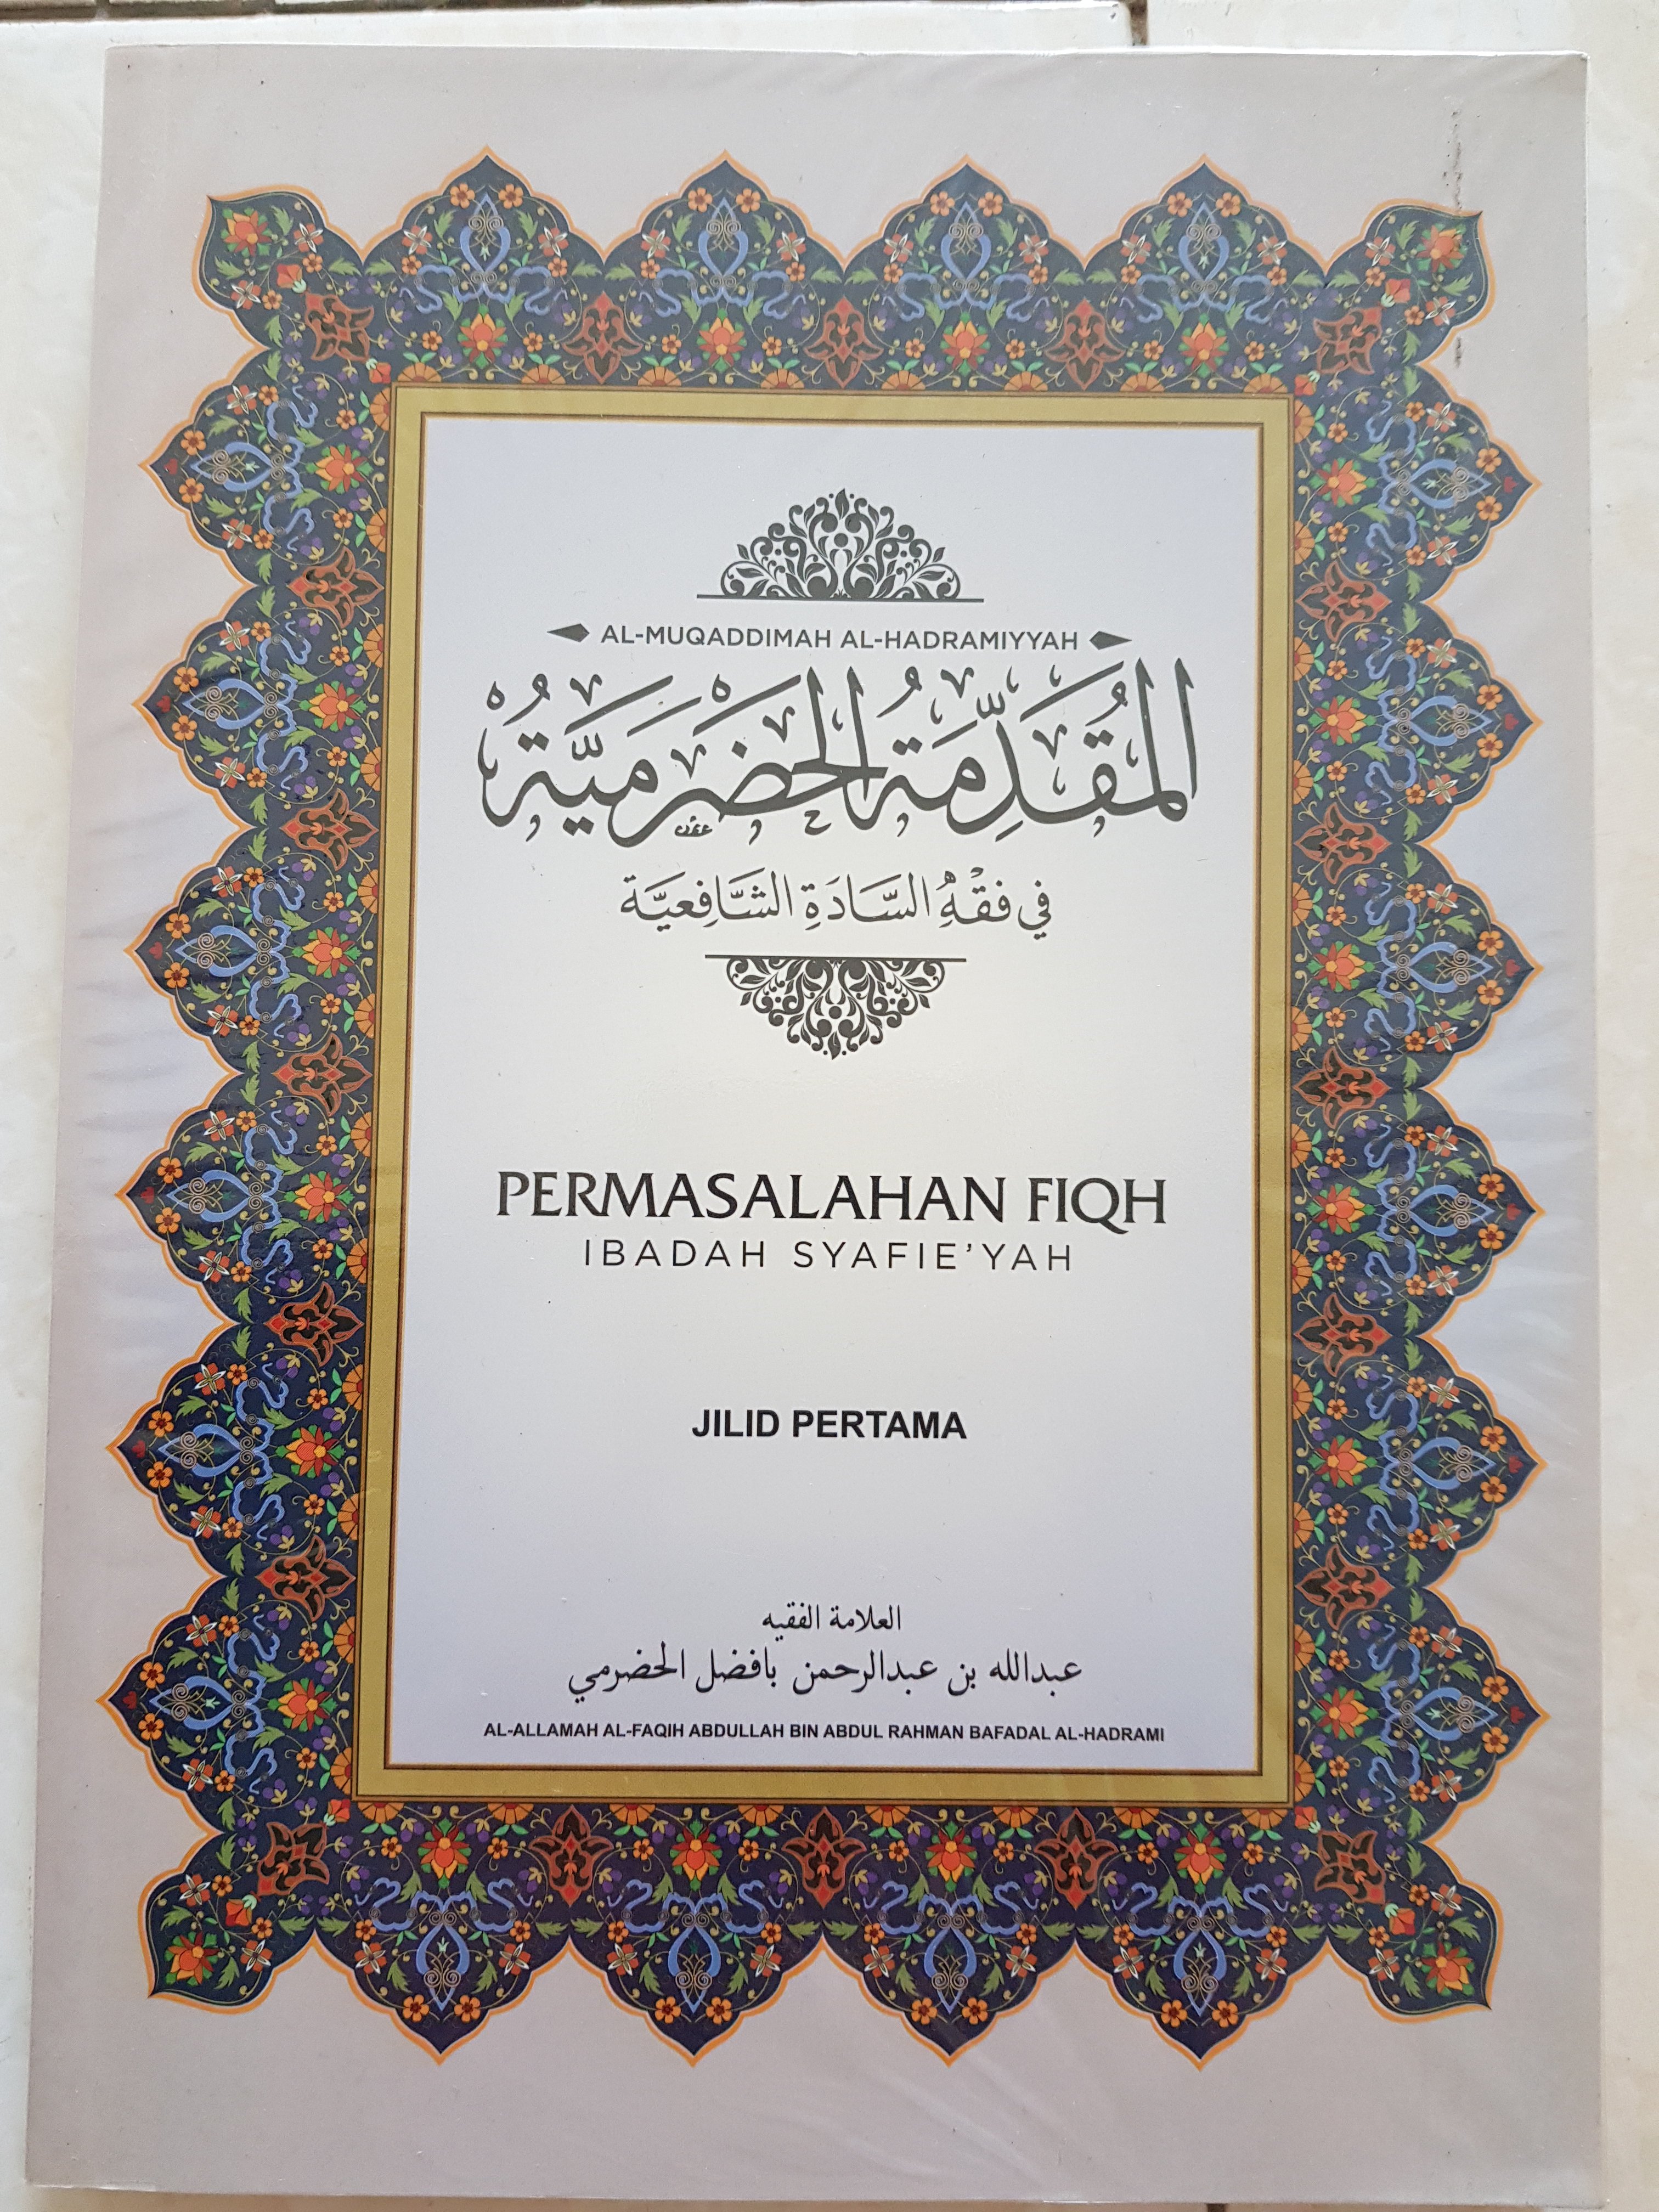 AL-MUQADDIMAH AL-HADRAMIYYAH
المُقَدِّمَةُ الحَضْرَمِيَّةُ
فِي فِقْهِ السَّادَةِ الشَّافِعِيَّة
PERMASALAHAN FIQH
IBADAH SYAFIE'YAH
JILID PERTAMA
العلامة الفقيه
عبدالله بن عبدالرحمن بافضل الحضرمي
AL-ALLAMAH AL-FAQIH ABDULLAH BIN ABDUL RAHMAN BAFADAL AL-HADRAMI